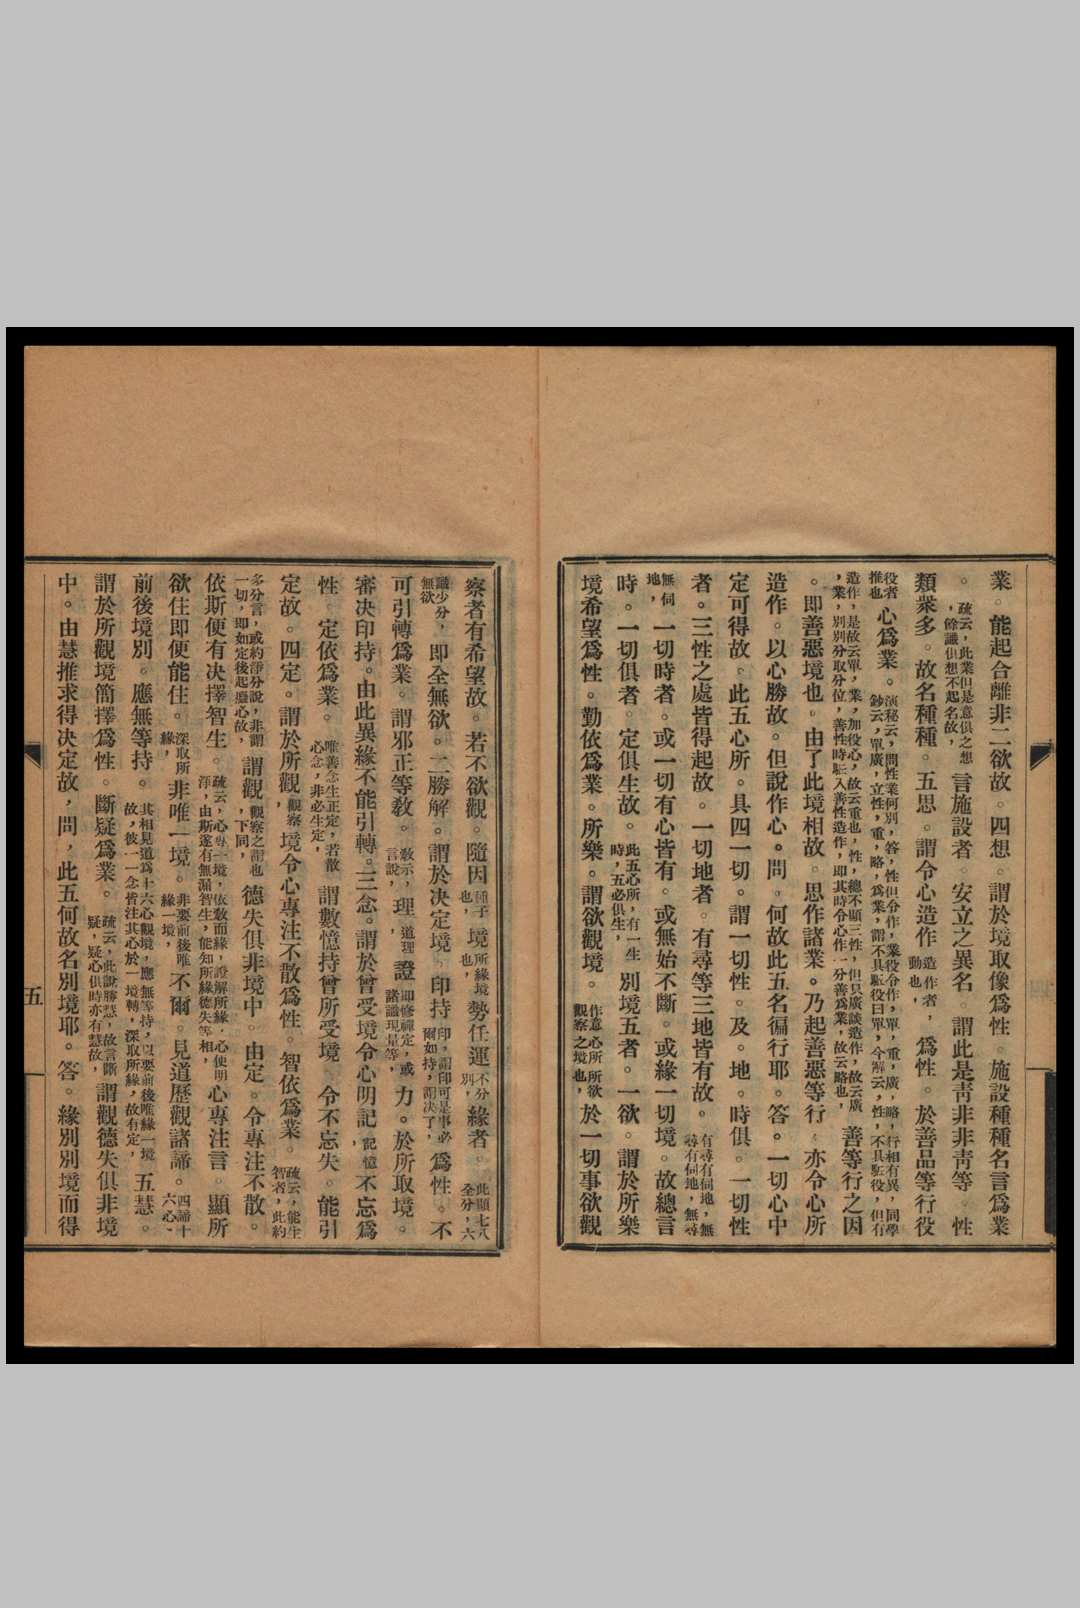 業。能起合離非二欲故。四想。謂於境取像爲性。施設種種名言爲業
。疏云，此業但是意俱之想，餘識俱想不起名故，言施設者。安立之異名。謂此是青非非青等。性
類衆多。故名種種。五思。謂令心造作造作者，動也，爲性。於善品等行役
役者推也心爲業。演秘云，問性業何別，答，性但令作，業役令作，單，重，廣，略，行相有異，同學鈔云，單廣，立性，重，略，爲業，謂不具驅役曰單，今解云，性，不具驅役，但有
造作，是故云單，業，加役心，故云重也，性，總不顯三性，但只廣談造作，故云廣，業，別別分取分位，善性時驅入善性造作，即其時令心作一分善爲業，故云略也，善等行之因
。即善惡境也。由了此境相故。思作諸業。乃起善惡等行。亦令心所
造作。以心勝故。但說作心。問。何故此五名徧行耶。答。一切心中
定可得故。此五心所。具四一切。謂一切性。及。地。時俱。一切性
者。三性之處皆得起故。一切地者。有尋等三地皆有故。有尋有伺地，無尋有伺地，無尋
無伺地，一切時者。或一切有心皆有。或無始不斷。或緣一切境。故總言
時。一切俱者。定俱生故。此五心所，有一生時，五必俱生，別境五者。一欲。謂於所樂
境希望爲性。勤依爲業。所樂。謂欲觀境。作意心所所欲觀察之境也，於一切事欲觀
察者有希望故。若不欲觀。隨因種子也，境所緣境也，勢任運不分別，緣者。此顯七八全分，六
識少分，無欲，即全無欲。二勝解。謂於決定境。印持印，謂印可是事必爾如持，謂決了，爲性。不
可引轉爲業。謂邪正等敎。敎示，言說，理，道理，證即修禪定，或諸識現量等，力。於所取境。
審決印持。由此異緣不能引轉。三念。謂於曾受境令心明記，記憶不忘爲
性。定依爲業。唯善念生正定，若散心念，非必生定，謂數憶持曾所受境。令不忘失。能引
定故。四定。謂於所觀，觀察境令心專注不散爲性。智依爲業。疏云，能生智者，此約
多分言，或約淨分說，非謂一切，即如定後起癡心故，謂觀觀察之謂也，下同，德失俱非境中。由定。令專注不散。
依斯便有决擇智生。疏云，心專一境，依敎而緣，證解所緣，心便明淨，由斯遂有無漏智生，能知所緣德失等相，心專注言。顯所
欲住即便能住。深取所緣，非唯一境。非要前後唯緣一境，不爾。見道歷觀諸諦。四諦十六心，
前後境別。應無等持。其相見道爲十六心觀境，應無等持，以要前後唯緣一境故，彼一一念皆注其心於一境轉，深取所緣，故有定，五慧。
謂於所觀境簡擇爲性。斷疑爲業。疏云，此說勝慧，故言斷疑，疑心俱時亦有慧故，謂觀德失俱非境
中。由慧推求得决定故，問，此五何故名別境耶。答。緣別別境而得
五